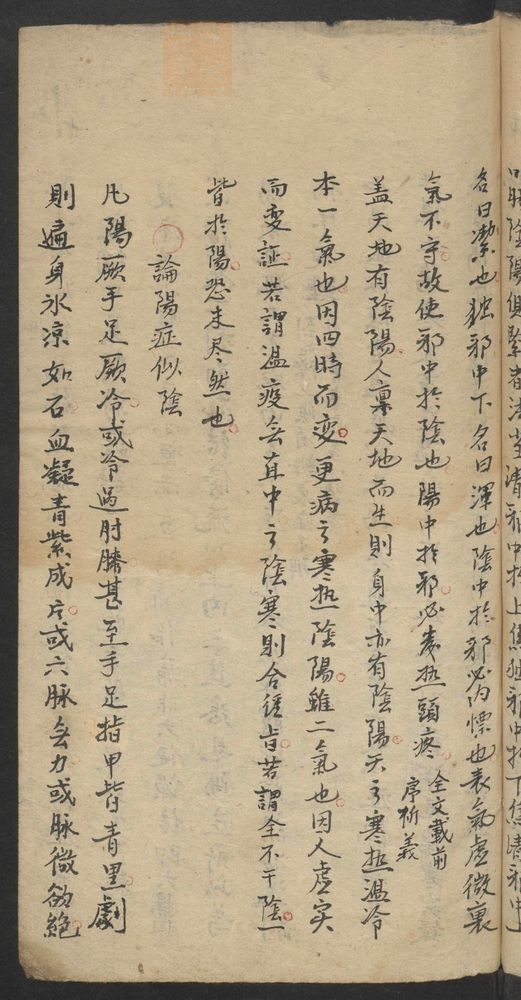 口脉陰陽俱緊者法當清邪中於上焦独邪中於下焦清邪中上
名曰潔也独邪中下名曰渾也陰中於邪必内慄也表氣虚微裏
氣不守故使邪中於陰也陽中於邪必发热頭疼 全文載前 序析義
盖天地有陰陽人禀天地而生則身中亦有陰陽天之寒热温冷
本一氣也因四時而变更病之寒热陰陽雖二氣也因人虚实
而变証若謂温疫会其中之陰寒則合経旨若謂全不干陰一
皆於陽恐未尽然也
論陽症似陰
凡陽厥手足厥冷或冷過肘膝甚至手足指甲皆青黑劇
則遍身氷凉如石血凝青紫成片或六脉無力或脉微欲絶